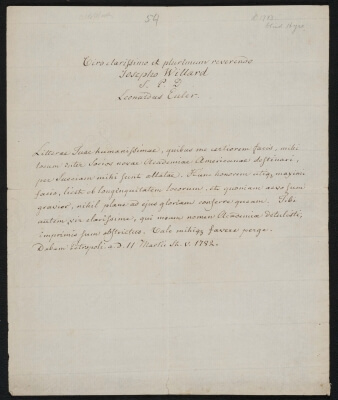 54
Viro clarissimo et plurimum reverendo
Josepho Willard
S. P. D.
Leonardus Euler.
Litterae Tuae humanissimae, quibus me certiorem facis, mihi
locum inter Socios novae Academiae Americanae destinari,
per Sueciam mihi sunt allatae. Hunc honorem utiq, maximi
facio, licet ob longinquitatem locorum, et quoniam aevo sum
gravior, nihil plane ad ejus gloriam conferre queam. Tibi
autem, vir clarissime, qui meum nomen Academiae detulisti,
imprimis sum obstrictus. Vale mihiq, favere perge.
Dabam Petropoli a.d. 11 Martii St. v. 1782.